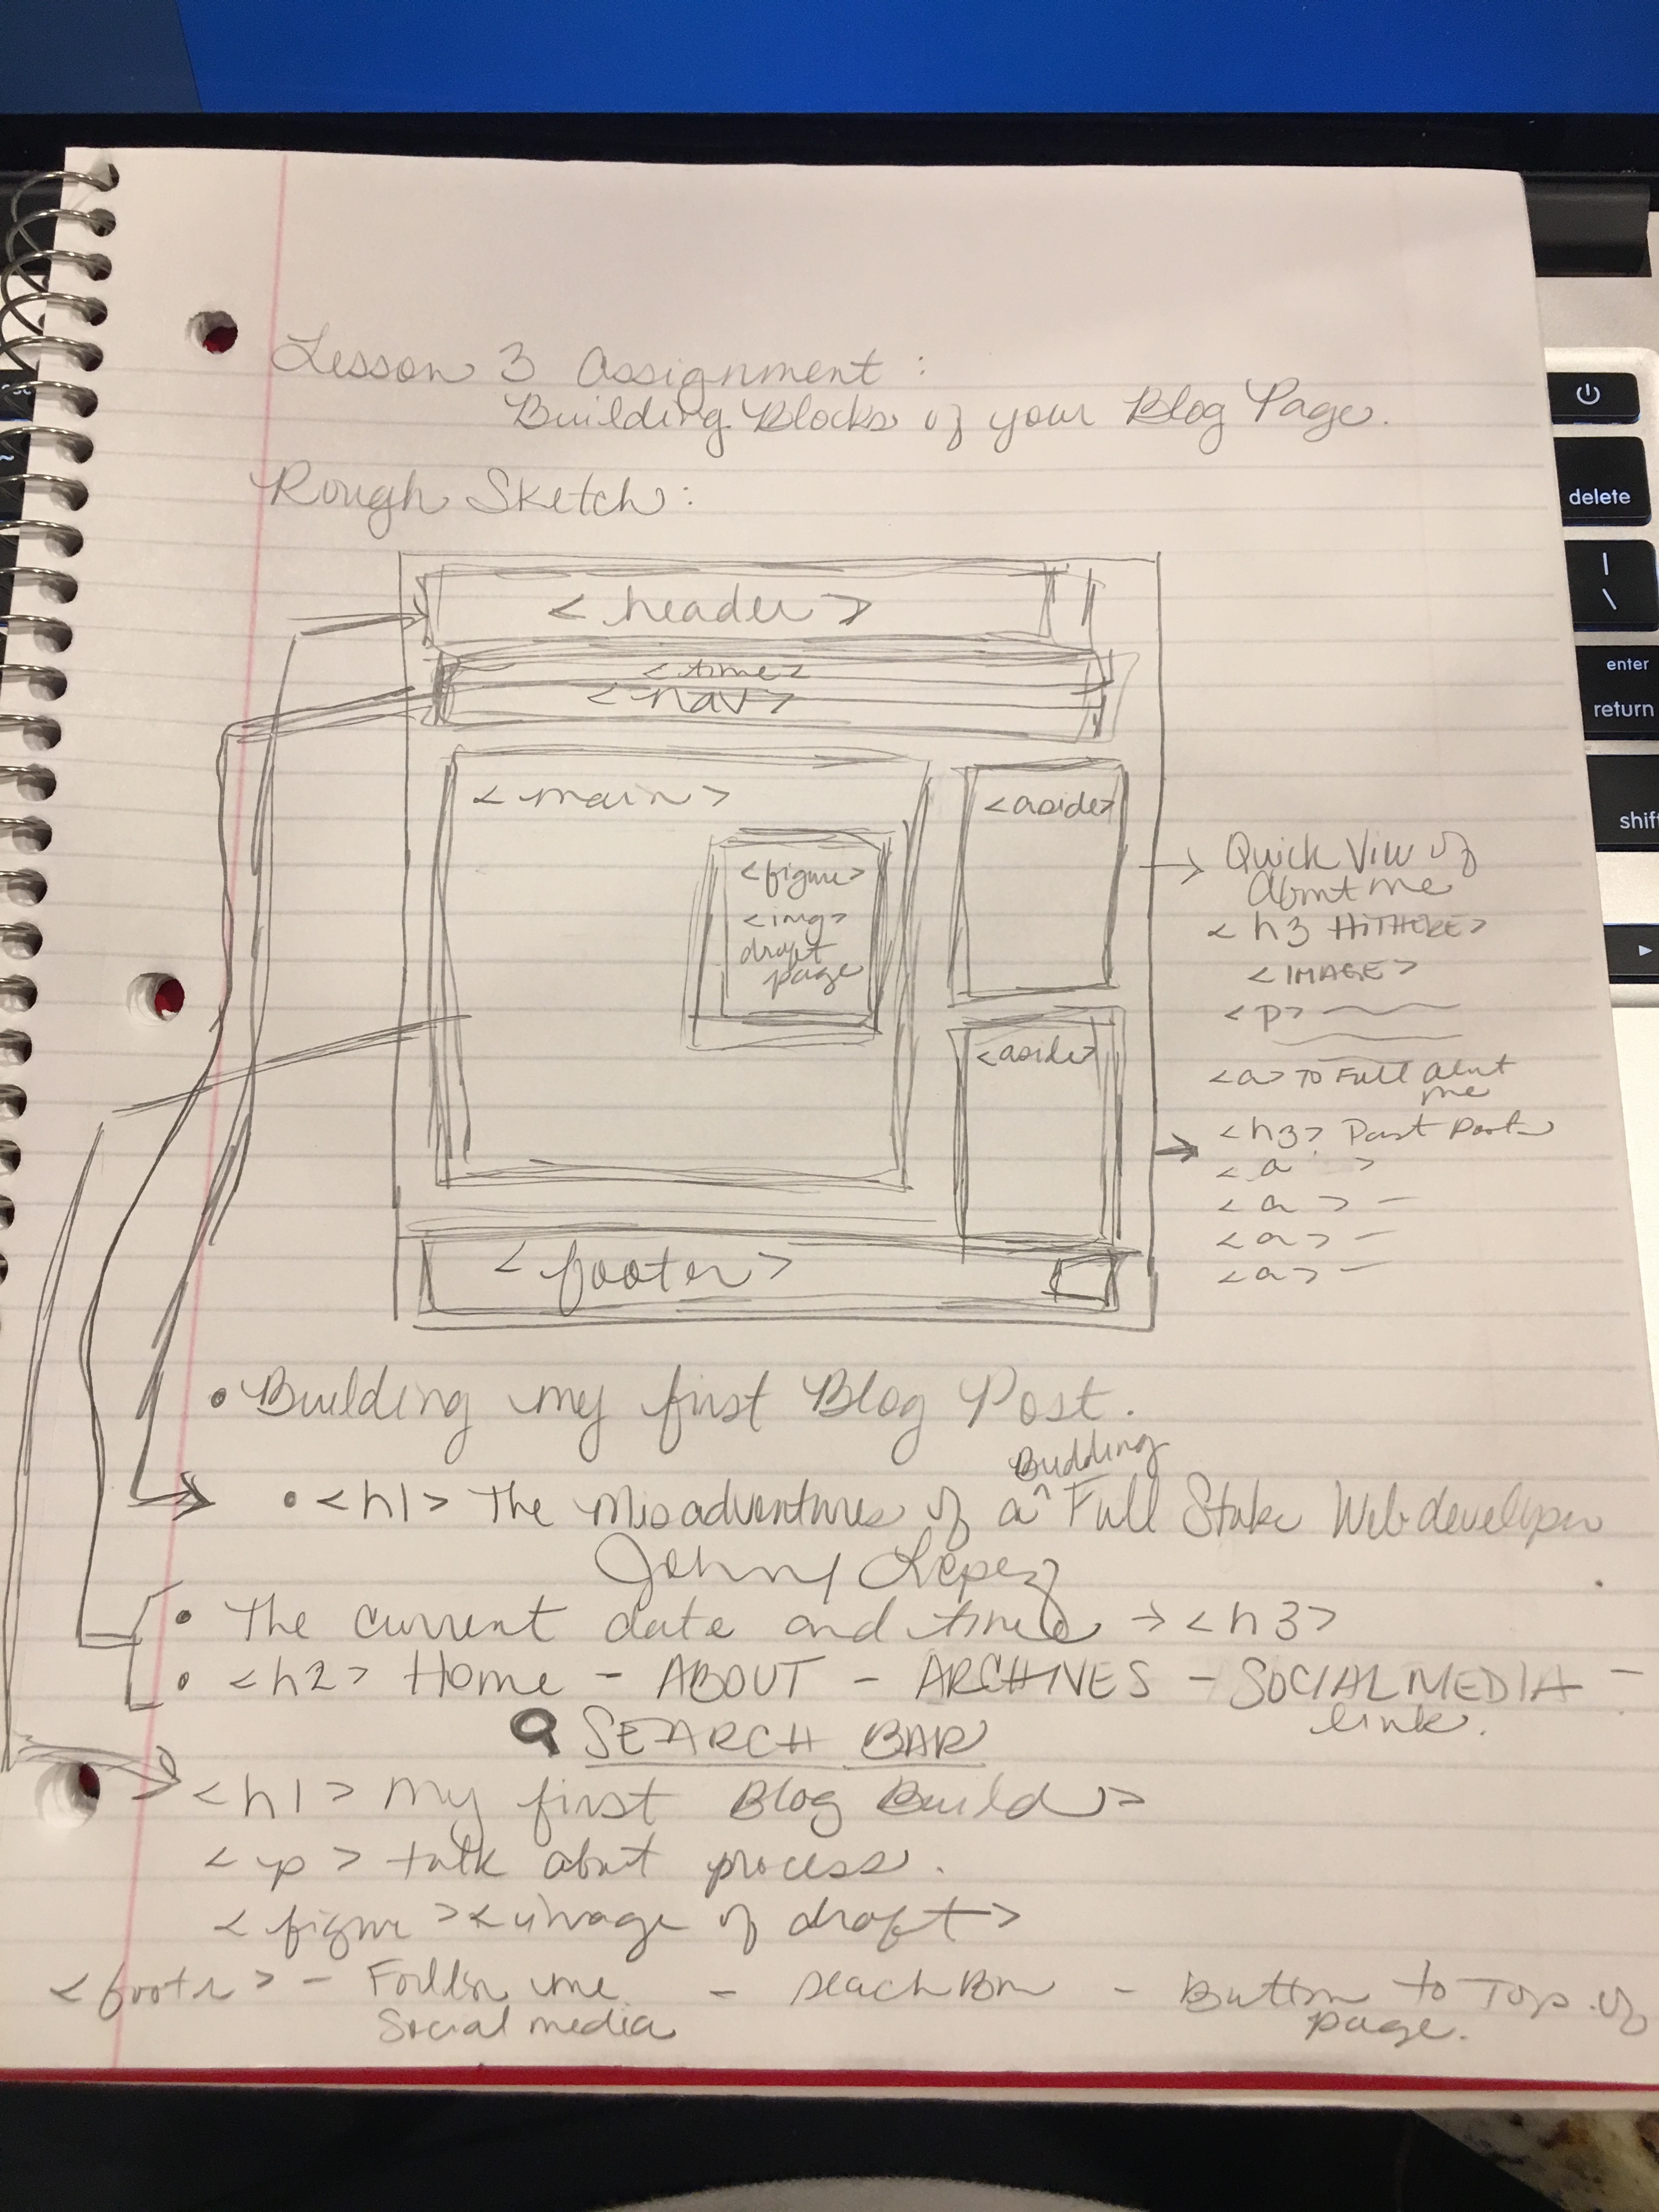 Lesson 3 Assignment :
Building Blocks of your Blog Page.
Rough Sketch :
< header >
<time>
<nav>
<main>
<figure>
<img>
draft
page
<aside>
<aside>
< footer >
Quick View of
About me
<h3 HiTHERE>
<IMAGE>
<p>
<a> TO Full about
me
<h3> Past Posts
<a >
<a > -
<a> -
<a> -
• Building my first Blog Post.
Budding
• <h1> The Misadventures of a ^ Full Stake Web developer
Johny Lopez
• The current date and time → <h3>
• <h2> Home - ABOUT - ARCHIVES - SOCIAL MEDIA -
link.
SEARCH BAR
<h1> My first Blog Build >
<p> talk about process.
<figure> <image of draft>
<footer> - Follow me - - Button to Top of
Social media page.
delete
|
\
enter
return
shift